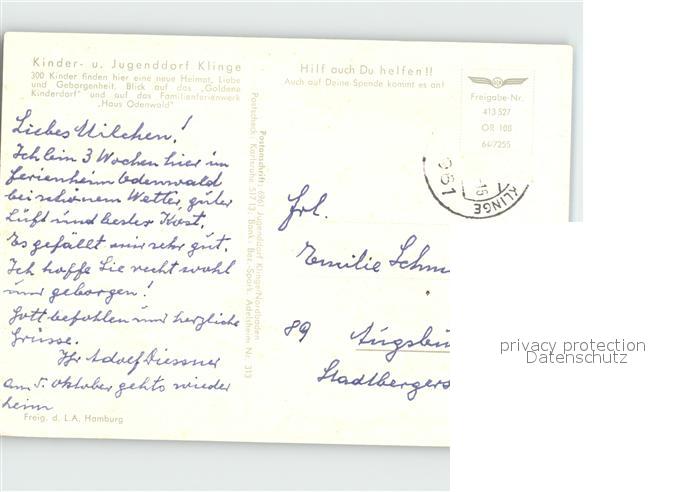 Kinder- u. Jugenddorf Klinge
300 Kinder finden hier eine neue Heimat, Liebe
und Geborgenheit. Blick auf das „Goldene
Kinderdorf" und auf das Familienferienwerk
„Haus Odenwald"
Liebes Milchen!
Ich bin 3 Wochen hier im
Ferienheim Odenwald
bei schönem Wetter, guter
Luft und bester Kost.
Es gefällt mir sehr gut.
Ich hoffe Sie recht wohl
und geborgen!
Gott befohlen und herzliche
Grüsse.
Ihr Adolf Diessner
am 5. Oktober gehts wieder
heim
Freig. d. L.A. Hamburg
Postanschrift: 6961 Jugenddorf Klinge/Nordbaden
Postscheck: Karlsruhe 517 13 · Bank: Bez.-Spark. Adelsheim Nr. 313
Hilf auch Du helfen!!
Auch auf Deine Spende kommt es an!
Freigabe-Nr.
413 527
OR 108
64/7255
961
-16
KLINGE
Frl.
Emilie Schm
89 Augsbu
Stadtbergers
privacy protection
Datenschutz